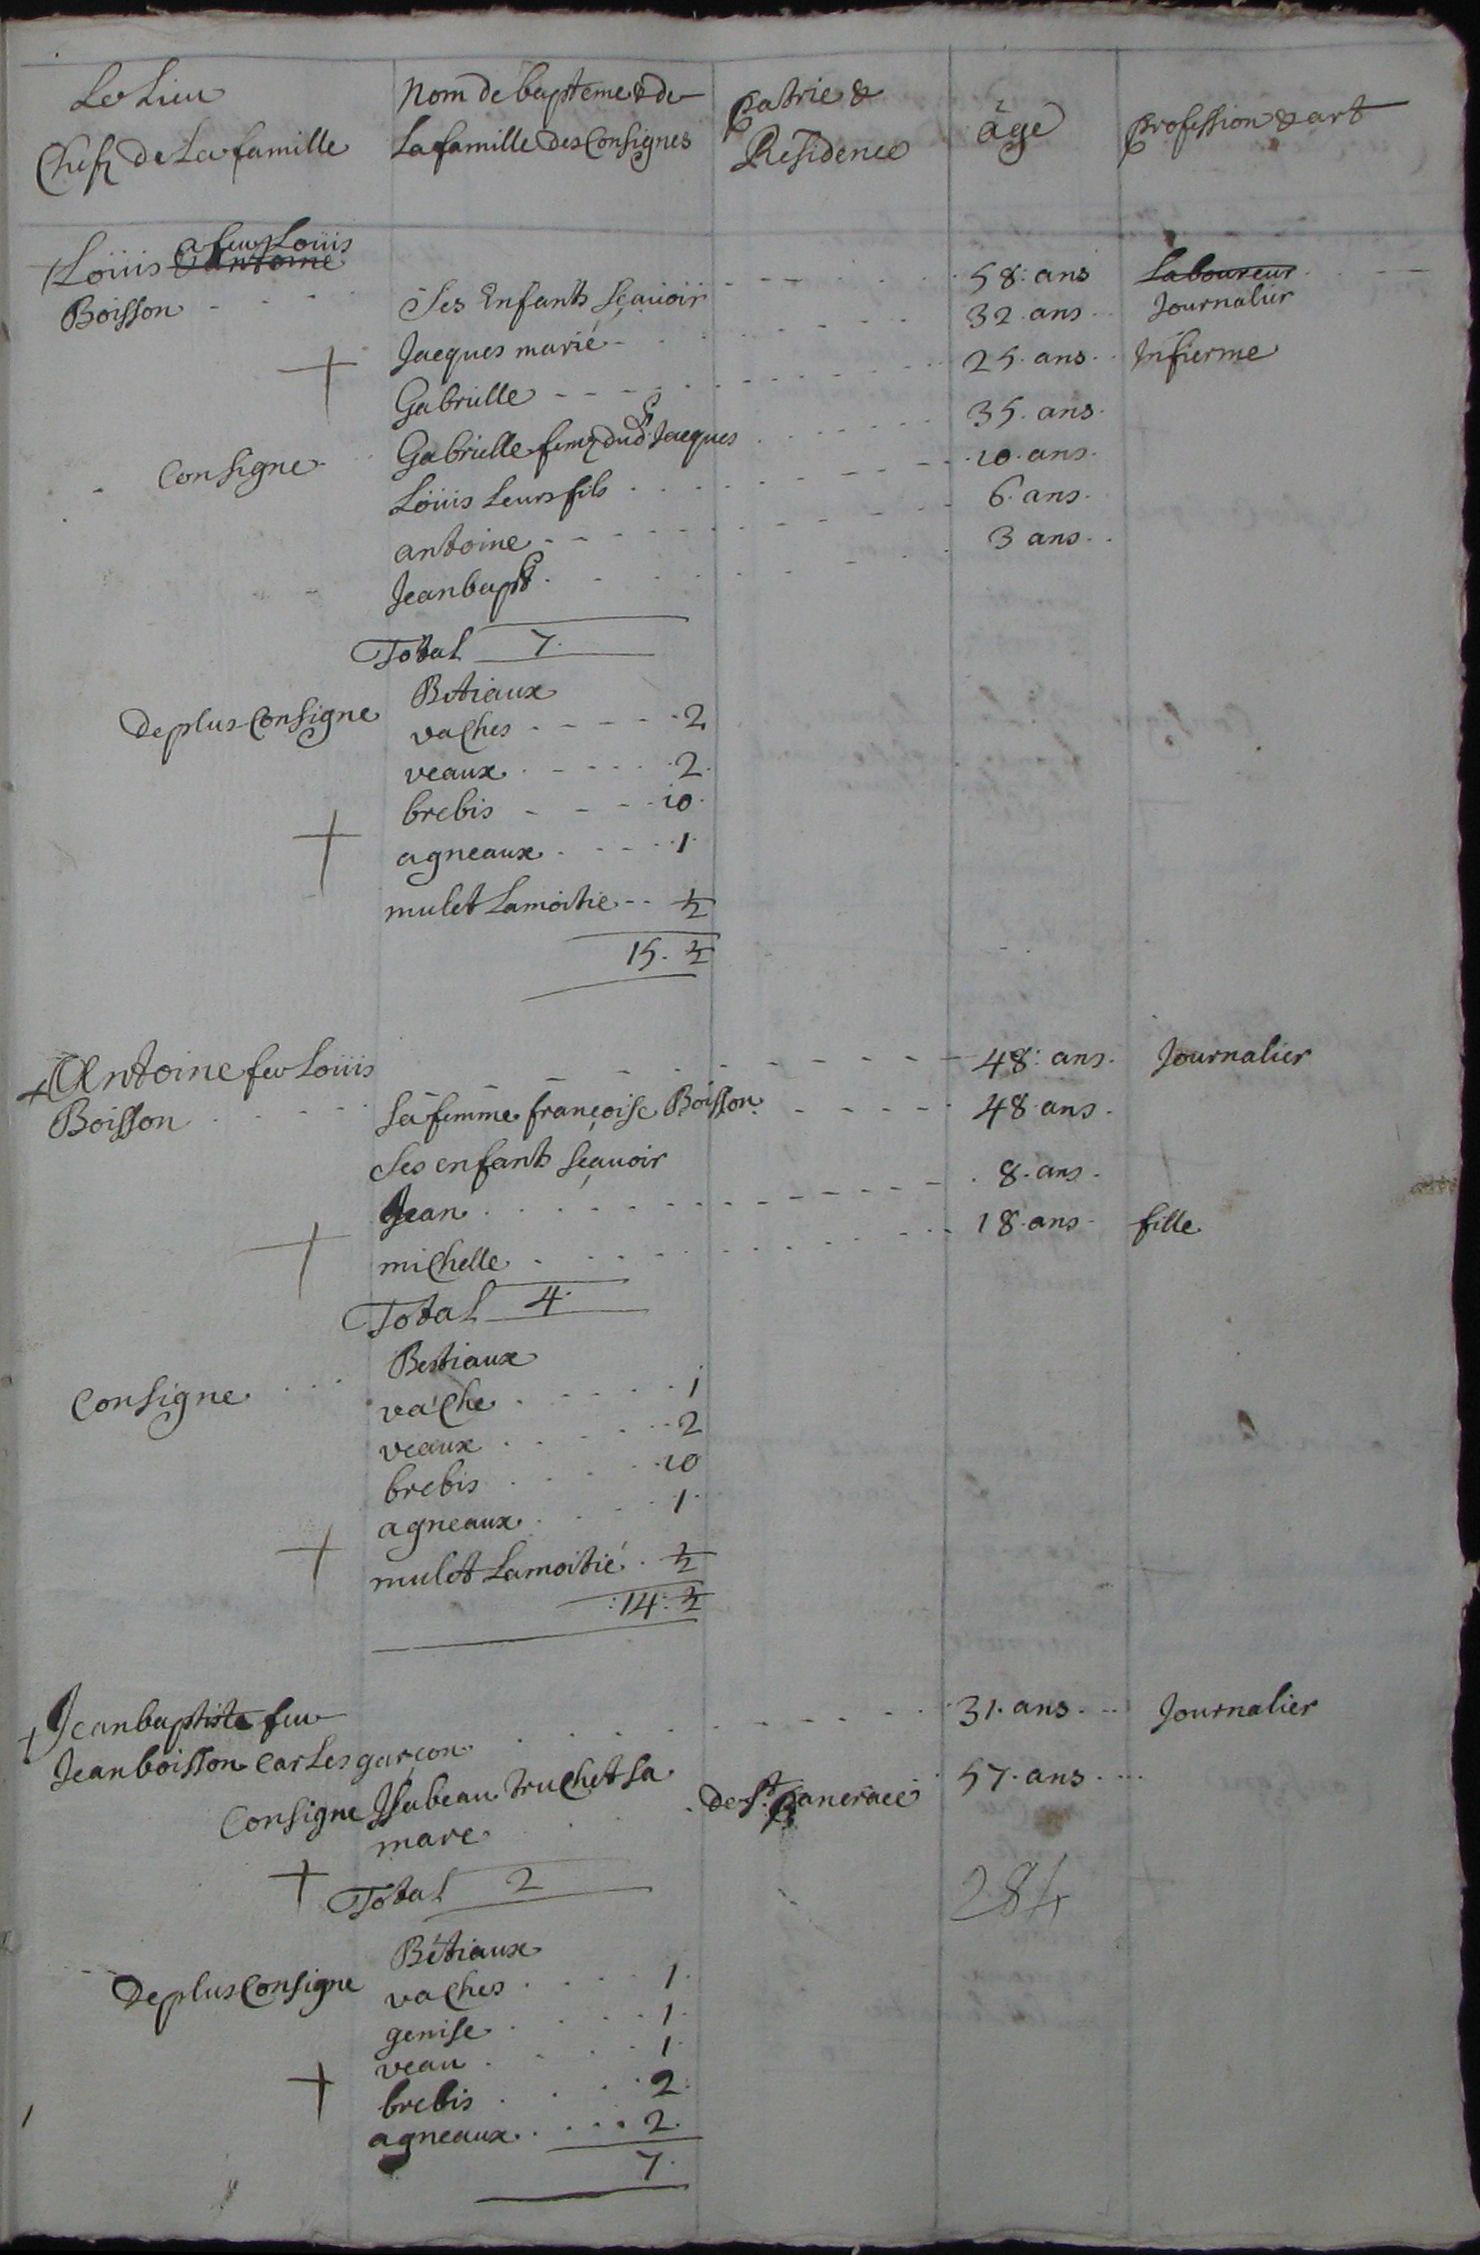 Le Lieu
Chefz de La famille
Nom de bapteme & de
La famille des Consignes
Patrie &
Residence
âge
profession & art
Loüis Antoine
a feu Loüis
Boisson
58. ans Laboureur
Ses Enfants Sçauoir
Jacques marié 32. ans Journalier
Gabrielle 25. ans Infierme
Consigne Gabrielle feme dud. Jacques 35. ans
Loüis Leurs fils 10. ans
antoine 6. ans
Jean bapte 3 ans
Total 7.
De plus Consigne Betiaux
vaches 2
veaux 2
brebis 10
agneaux 1
mulet La moitie ½
15. ½
Antoine feu Loüis
Boisson
48. ans Journalier
Sa femme françoise Boisson 48 ans
Ses enfants Sçauoir
Jean 8. ans
michelle 18 ans fille
Total 4.
Consigne Bestiaux
vache 1
veaux 2
brebis 10
agneaux 1
mulet La moitié ½
14: ½
Jean baptiste feu
Jean boisson Carles garçon 31. ans Journalier
Consigne Isabeau truchet Sa
mare de St. pancrace 57. ans
Total 2
284
De plus Consigne Bêtiaux
vaches 1
genise 1
veau 1
brebis 2
agneaux 2
7.